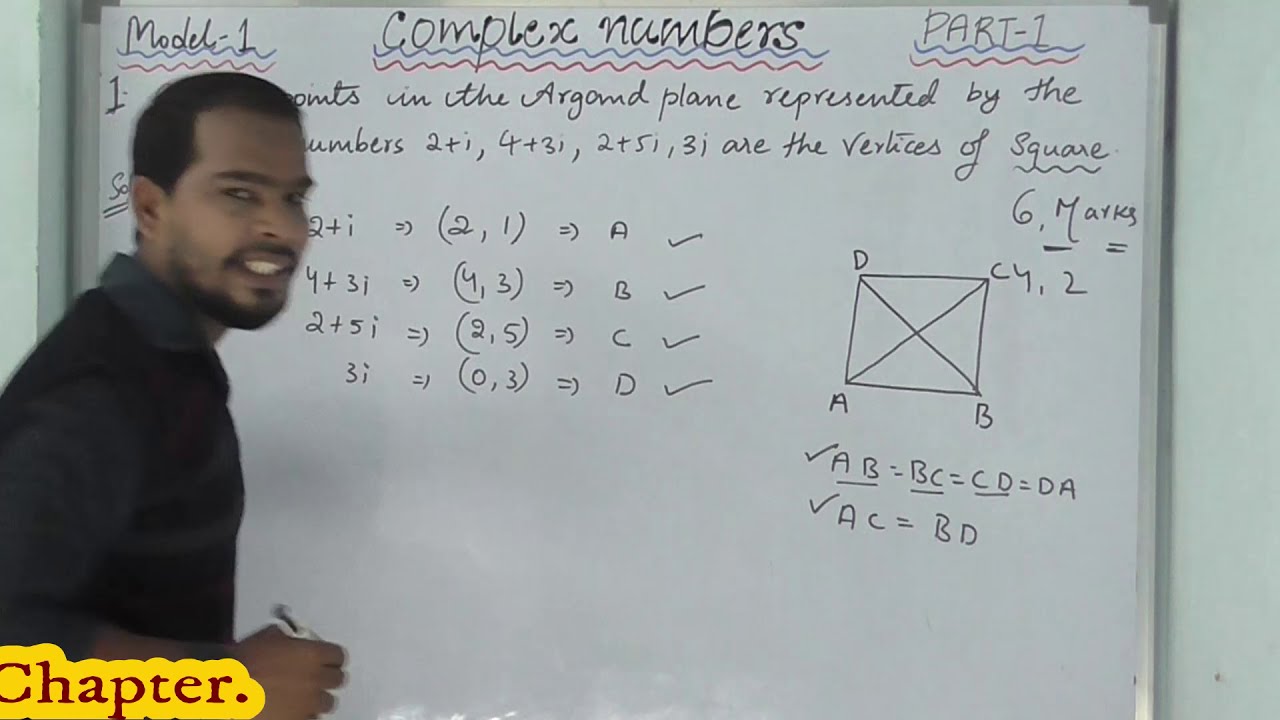 Model-1 Complex numbers PART-1
1. in the Argand plane represented by the
2+i, 4+3i, 2+5i, 3i are the vertices of Square.
6, Marks
2+i ⇒ (2, 1) ⇒ A ✓
4+3i ⇒ (4, 3) ⇒ B ✓
2+5i ⇒ (2, 5) ⇒ C ✓
3i ⇒ (0, 3) ⇒ D ✓
D C 4, 2
A B
✓AB = BC = CD = DA
✓AC = BD
Chapter.